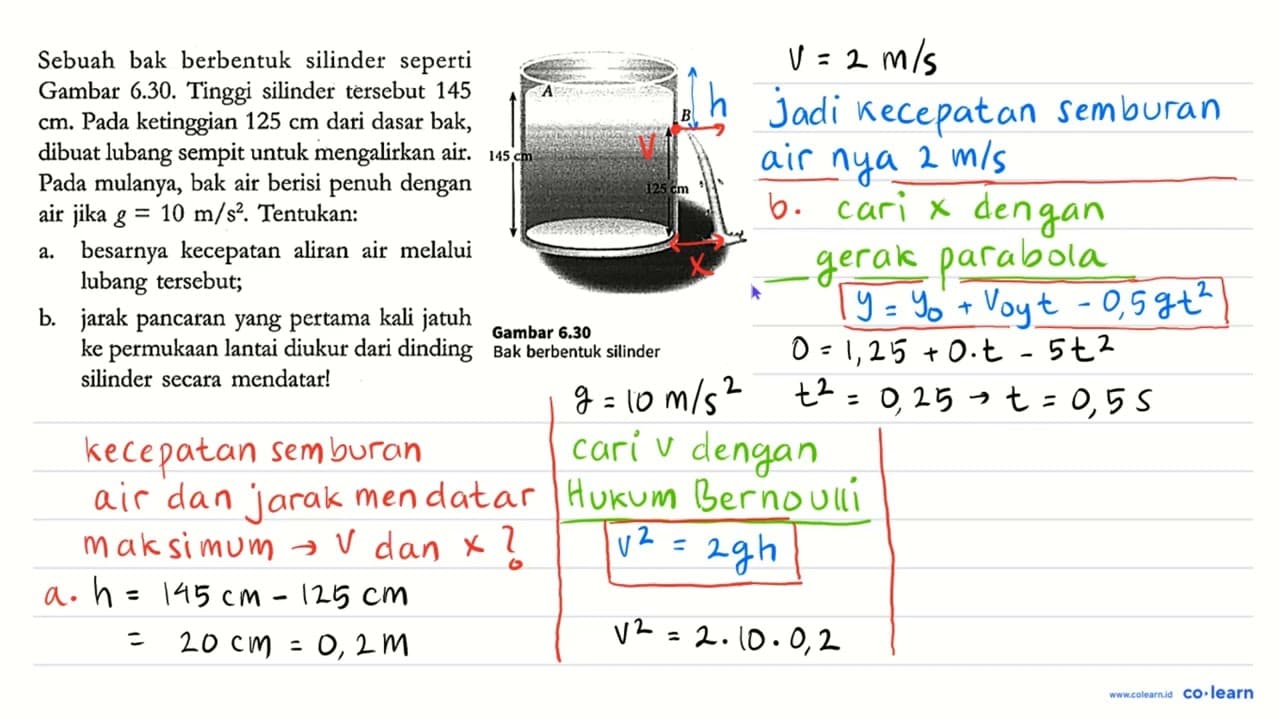 Sebuah bak berbentuk silinder seperti
Gambar 6.30. Tinggi silinder tersebut 145
cm. Pada ketinggian 125 cm dari dasar bak,
dibuat lubang sempit untuk mengalirkan air.
Pada mulanya, bak air berisi penuh dengan
air jika g = 10 m/s². Tentukan:
a. besarnya kecepatan aliran air melalui
lubang tersebut;
b. jarak pancaran yang pertama kali jatuh
ke permukaan lantai diukur dari dinding
silinder secara mendatar!
A
B
h
V
145 cm
125 cm
x
Gambar 6.30
Bak berbentuk silinder
kecepatan semburan
air dan jarak mendatar
maksimum → V dan x ?
a. h = 145 cm - 125 cm
= 20 cm = 0,2 M
g = 10 m/s²
cari v dengan
Hukum Bernoulli
v² = 2gh
v² = 2.10.0,2
V = 2 m/s
jadi kecepatan semburan
air nya 2 m/s
b. cari x dengan
gerak parabola
y = y₀ + V₀y t - 0,5 gt²
0 = 1,25 + 0.t - 5t²
t² = 0,25 → t = 0,5 s
www.colearn.id co·learn